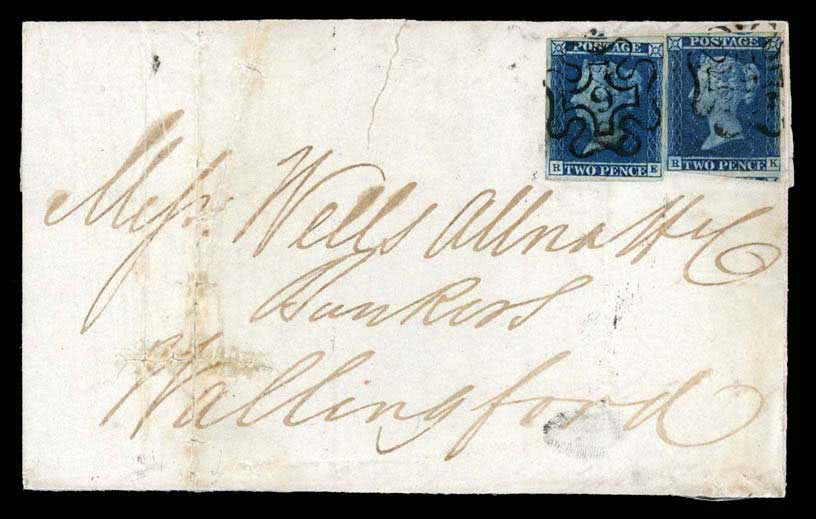 POSTAGE
9
TWO PENCE
R E
POSTAGE
TWO PENCE
R K
Messrs Wells Allnatt & Co
Bankers
Wallingford